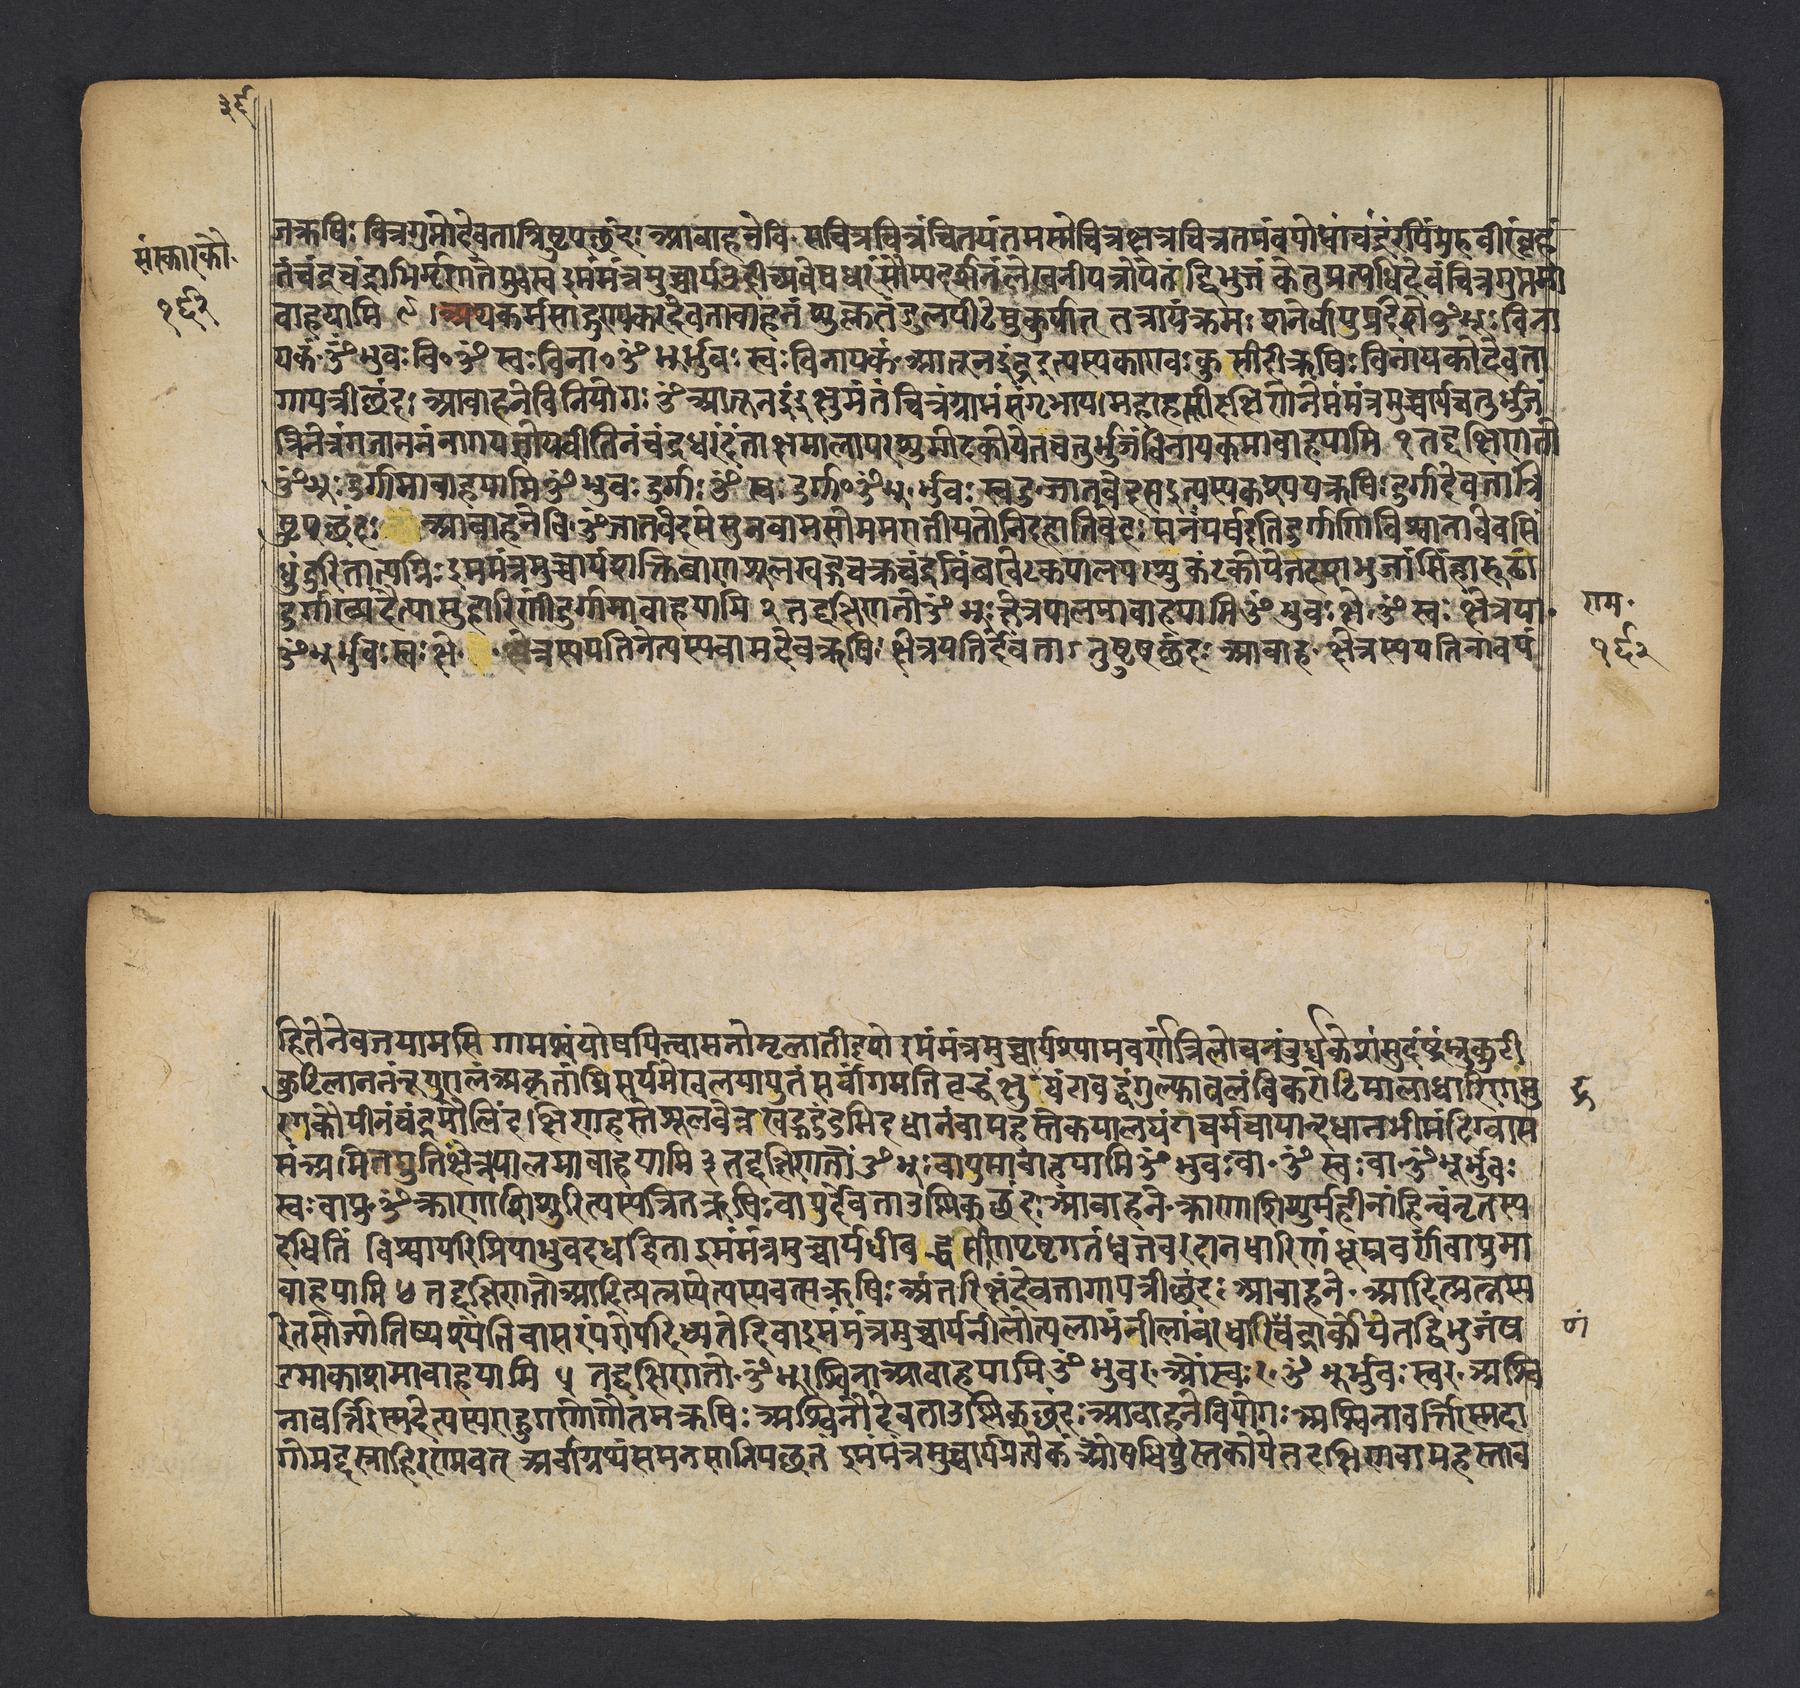 ३९
संस्कारकौ॰
१९२
जऋषिः चित्रगुप्तोदेवतात्रिष्टुप्छंदः आवाहनेवि॰ सचित्रचित्रंचितयंतमस्मेचित्रक्षत्रचित्रतमंवयोधांचंद्रंरयिंपुरुवीरंबृहं
तंचंद्रचंद्राभिर्गृणतेयुवस्व इमंमंत्रमुच्चार्यउदीच्यवेषधरंसौम्यदर्शनंलेखनीपत्रोपेतं द्विभुजं केतुप्रत्यधिदेवंचित्रगुप्तमा
वाहयामि ९ अथकर्मसाद्गुण्यकरदेवतावाहनं शुक्लतंडुलपीठेषुकुर्यात् तत्रायंक्रमः शनेर्वायुप्रदेशेॐभूः विना
यकं॰ ॐ भुवः वि॰ ॐ स्वः विना॰ ॐ भूर्भुवः स्वः विनायकं॰ आतूनइंद्रइत्यस्यकाण्वः कु सीदीऋषिः विनायकोदेवता
गायत्रीछंदः आवाहनेविनियोगः ॐ आतूनइंद्रक्षुमंतंचित्रंग्राभंसंगृभाय महाहस्तीदक्षिणेनेमंमंत्रमुच्चार्यचतुर्भुजं
त्रिनेत्रंगजाननंनागयज्ञोपवीतिनंचंद्रधरंदंताक्षमालापरशुमोदकोपेतचतुर्भुजंविनायकमावाहयामि १ तद्दक्षिणतो
ॐभूः दुर्गामावाहयामिॐ भुवः दुर्गां॰ ॐ स्वः दुर्गां॰ॐभूर्भुवः स्वदु॰ जातवेदसइत्यस्यकश्यपऋषिः दुर्गादेवतात्रि
ष्टुप्छंदः आवाहनेवि॰ ॐजातवेदसेसुनवामसोममरातीयतोनिदहातिवेदः सनःपर्षदतिदुर्गाणिविश्वानावेवसिं
धुंदुरितात्यग्निः इमंमंत्रमुच्चार्यशक्तिबाणशूलखड्गचक्रचंद्रबिंबखेटकपालपरशुकंटकोपेतदशभुजांसिंहारूढां
दुर्गाख्यदैत्यासुहारिणींदुर्गामावाहयामि २ तद्दक्षिणतोॐ भूः क्षेत्रपालमावाहयामिॐ भुवः क्षे॰ ॐ स्वः क्षेत्रपा॰
ॐभूर्भुवः स्वः क्षे॰ क्षेत्रस्यपतिनेत्यस्यवामदेवऋषिः क्षेत्रपतिर्देवता नुष्टुप्छंदः आवाह॰ क्षेत्रस्यपतिनावयं
राम॰
१९२
हितेनेवजयामसि गामश्वंपोषयित्न्वासनोमृळातीदृशे इमंमंत्रमुच्चार्यश्यामवर्णंत्रिलोचनंऊर्ध्वकेशंसुदंष्ट्रंभ्रुकुटी
कुटिलाननंनूपुरालंकृतांघ्रिंसर्पमेखलयायुतं सर्पांगमतिक्रुद्धं क्षुद्रघंटाबद्धंगुल्फावलंबिकरोटिमालाधारिणमु
रगकौपीनंचंद्रमौलिंदक्षिणहस्तैःशूलवेत्रखड्गदुंदुभिदधानंवामहस्तैःकपालघंटाचर्मचापान्दधानंभीमंदिग्वास
समं अमितद्युतिंक्षेत्रपालमावाहयामि ३ तद्दक्षिणतो ॐ भूः वायुमावाहयामिॐ भुवः वा॰ ॐ स्वः वा॰ ॐभूर्भुवः
स्वः वायु॰ ॐ क्राणाशिशुरित्यस्यत्रितऋषिः वायुर्देवताउष्णिक्छंदः आवाहने॰ क्राणाशिशुर्महीनांहिन्वन्नृतस्य
दीधितिं विश्वापरिप्रियाभुवदधद्विता इमंमंत्रमुच्चार्यधावद्धरिणपृष्ठगतंध्वजवरदानधारिणं धूम्रवर्णंवायुमा
वाहयामि ४ तद्दक्षिणतोआदित्प्रत्नस्येत्यस्यवत्सऋषिः अंतरिक्षंदेवतागायत्रीछंदः आवाहने॰ आदित्प्रत्नस्य
रेतसोज्योतिष्पश्यंतिवासरंपरोयदिध्यतेदिवाइमंमंत्रमुच्चार्यनीलोत्पलाभंनीलांबरधारिचंद्रार्कोपेतद्विभुजंष
ण्ढमाकाशमावाहयामि ५ तद्दक्षिणतो॰ॐभूरश्विनाआवाहयामिॐ भुवर॰ ओंस्वः र॰ ॐ भूर्भुवः स्वर॰ अश्वि
नावर्त्तिरस्मदेत्यस्यराहूगणोगौतमऋषिः अश्विनौदेवताउष्णिक्छंदः आवाहनेविनियोगः अश्विनावर्त्तिरस्मदा
गोमद्दस्राहिरण्यवत् अर्वाग्रथंसमनसानियछतं इमंमंत्रमुच्चार्यप्रत्येकंओषधिपुस्तकोपेतदक्षिणवामहस्ताव